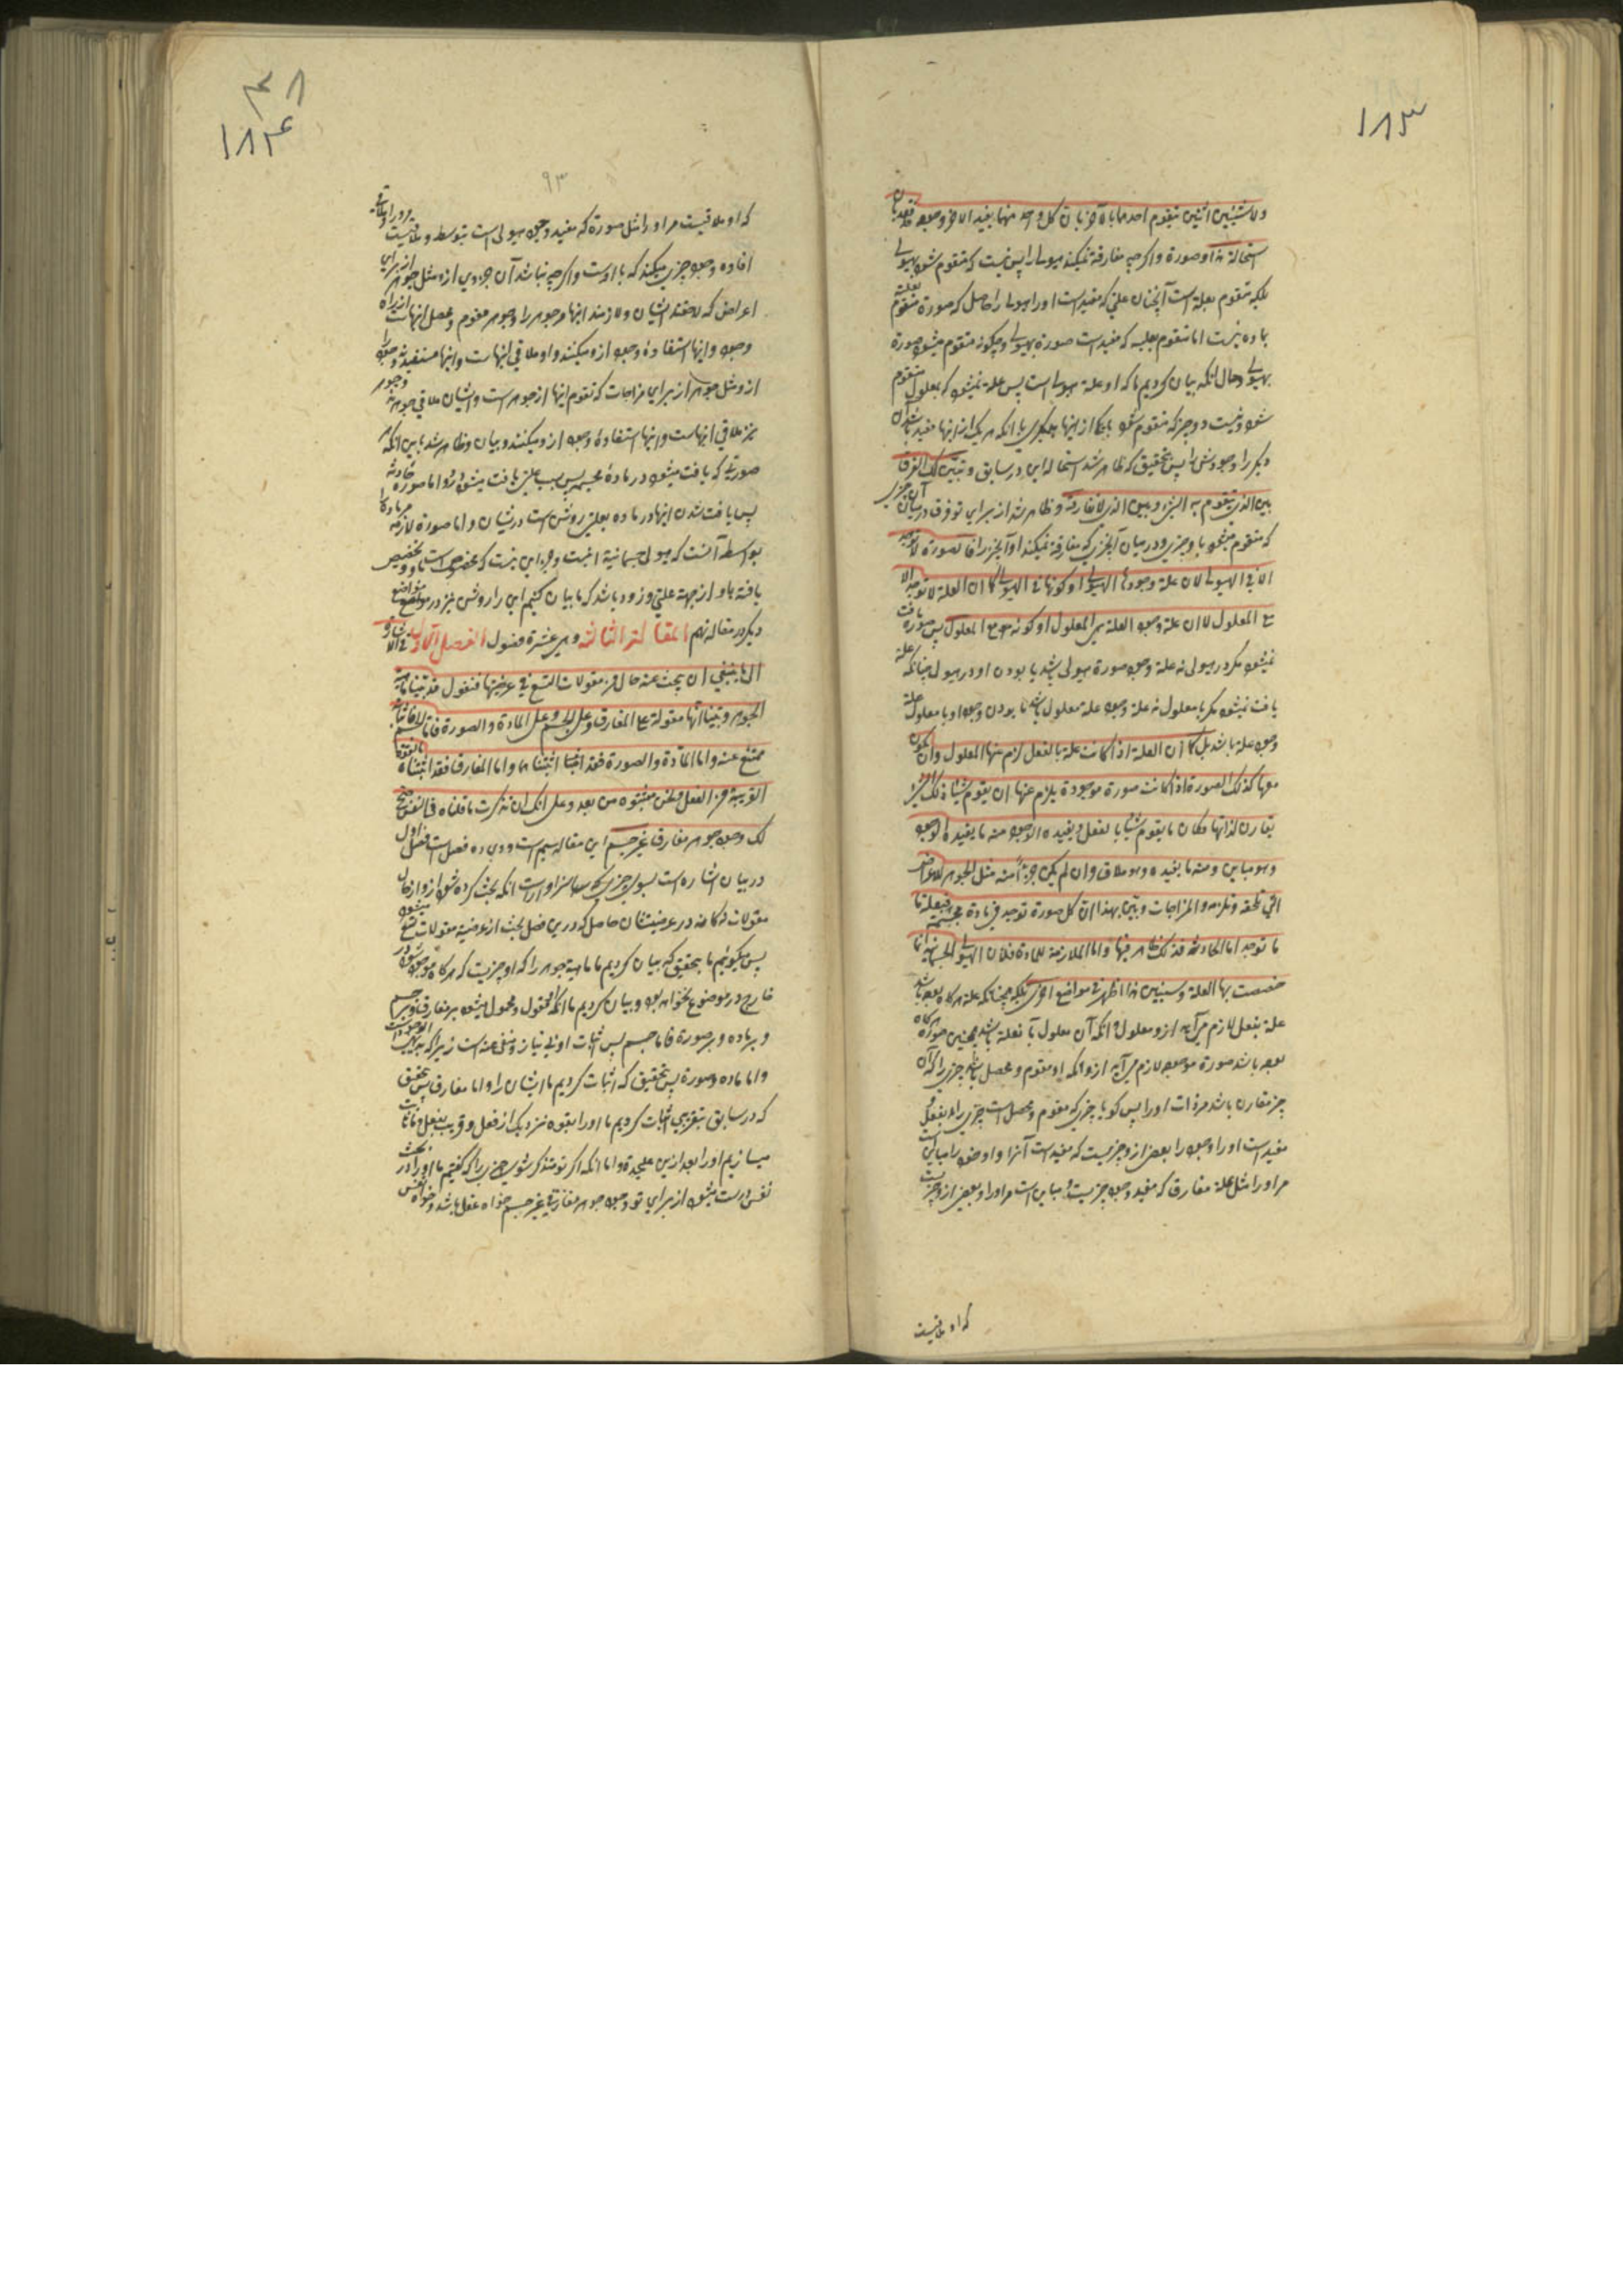 ۱۸۳
ولا شیئین اثنین یتقوم احدهما بالآخر بان کل واحد منهما یفید الآخر وجوده فقد بان
استحالة هذا و صورة واکرچه مفارقة نمیکند هیولی را پس نیست که متقوم شود بهیولی
بلکه متقوم بعلة است آنچنان علتی که مفید است اورا هیولی را حاصل که صورة متقوم
بماده نیست اما متقوم بعلیه که مفید است صورة بهیولی و چکونه متقوم میشود صورة
بهیولی وحال انکه بیان کردیم ما که او علة هیولی است پس علة نمیشود که بمعلول متقوم
شود و نیست دو چیز که متقوم شود با یکی از اینها بدیکری بانکه هر یک از اینها مفید باشد آن
دیکر را وجودش را پس بتحقیق که ظاهر شد استحاله این در سابق و تبین لک الفرق
بین الذی یتقوم به الشیء و بین الذی لا یفارقه و ظاهر شد از برای تو فرق در میان آن چیزی
که متقوم میشود باو چیزی و در میان آنچیزی که مفارقة نمیکند او آنچیز را فالصورة لا توجد
الا فی الهیولی لا ان علة وجودها الهیولی او کونها فی الهیولی کما ان العلة لا توجد الا
مع المعلول لا ان علة وجود العلة هی المعلول او کونه مع المعلول پس صورة یافت
نمیشود مکر در هیولی نه علة وجود صورة هیولی باشد یا بودن او در هیولی چنانکه علة
یافت نمیشود مکر با معلول نه علة وجود علة معلول باشد یا بودن وجود او با معلول علة
وجود علة باشد بل کما ان العلة اذا کانت علة بالفعل لزم عنها المعلول وان یکون
معها کذلک الصورة اذا کانت صورة موجودة یلزم عنها ان یقوم شیئا ذلک الشیء
یقارن لذاتها فکان ما یقوم شیئا بالفعل و یفیده الوجود منه ما یفیده الوجود
وهو مباین و منه ما یفیده وهو ملاق وان لم یکن جزءا منه مثل الجوهر للاعراض
التی تلحقه و تلزمه والمزاجات و تبین بهذا ان کل صورة توجد فی مادة مجسمة فبعلة ما
ما توجد اما الحادثة فذلک ظاهر فیها واما الملازمة للمادة فلان الهیولی الجسمانیة انما
خصصت بها لعلة و سنبین هذا اظهر فی مواضع اخری بلکه همچنانکه علة هرکاه بوده باشد
علة بفعل لازم می آید ازو معلول و انکه آن معلول با علة باشد همچنین صورة هرکاه
بوده باشد صورة موجوده لازم می آید ازو انکه او مقوم و محصل باشد چیزی را که آن
چیز مقارن باشد مر ذات اورا پس کویا چیزی که مقوم و محصل است چیزی را بفعل و
مفید است اورا وجود را بعض ازو چیزیست که مفید است آنرا و او خود را مباین است
مر اورا مثل علة مفارق که مفید وجود چیزیست و مباین است مر اورا و بعض ازو چیزیست
که او ملاقیست
۳۸
۱۸۴
۹۳
که او ملاقیست مر اورا مثل صورة که مفید وجود هیولی است بتوسط و ملاقیست
افاده وجود چیزی میکند که با اوست واکرچه نباشد آن جزوی ازو مثل جوهر از برای
اعراض که لاحقند ایشان و لازمند اینها مر جوهر را و جوهر مقوم و محصل اینهاست از براه
وجود و اینها استفادهٔ وجود ازو میکنند و او ملاقی اینهاست و اینها مستفیدند وجود را
ازو مثل جوهر از برای مزاجات که تقوم اینها از جوهر است و ایشان ملاقی جوهرند و جوهر
نیز ملاقی اینهاست و اینها استفادهٔ وجود ازو میکنند و بیان و ظاهر شد باین انکه هر
صورتی که یافت میشود در مادهٔ مجسمه پس بسبب علتی یافت میشود ازو اما صورة حادثه
پس یافت شدن اینها در ماده بعلتی روشن است در ایشان و اما صورة لازمه مر ماده را
بواسطه آنست که هیولی جسمانیة اینست و جز این نیست که مخصوص است باو و تخصیص
یافته باو از جهة علتی و زود باشد که ما بیان کنیم این را روشن تر در مواضع
دیکر در مقاله نهم المقالة الثالثة و هی عشرة فصول الفصل الاول فی الاشارة
الی ما ینبغی ان یبحث عنه من حال المقولات التسع فی عرضیتها فنقول قد بینا ماهیة
الجوهر و بینا انها مقولة علی المفارق و علی الجسم و علی المادة و الصورة فاما الجسم فاثباته
ممتنع عنه واما المادة و الصورة فقد اثبتناهما واما المفارق فقد اثبتناه بالقوة
القریبة من الفعل و نحن مثبتوه من بعد و علی انک ان تذکرت ما قلناه فی النفس صح
لک وجود جوهر مفارق غیر جسم این مقاله سیم است و درین ده فصل است فصل اول
در بیان اشاره است بسوی چیزی که سزاوار است انکه بحث کرده شود ازو از حال
مقولات نه کانه در عرضیتشان حاصل که درین فصل بحث از عرضیة مقولات تسع میشود
پس میکوئیم ما بتحقیق که بیان کردیم ما ماهیة جوهر را که او چیزیست که هرکاه موجود شود در
خارج در موضوع نخواهد بود و بیان کردیم ما انکه مقول و محمول میشود بر مفارق و بر جسم
و بر ماده و بر صورة فاما جسم پس اثبات او بی نیاز و مستغنی عنه است زیرا که بدیهی الوجود است
واما ماده و صورة پس بتحقیق که اثبات کردیم ما ایشان را واما مفارق پس بتحقیق
که در سابق بتقریبی اثبات کردیم ما اورا بقوه نزدیک از فعل و قریب بفعل و ما اثبات
میسازیم اورا بعد ازین علیحده و اما انکه اکر تو متذکر شوی چیزی را که کفتیم ما اورا در بحث
نفس درست میشود از برای تو وجود جوهر مفارق غیر جسم خواه عقل باشد و خواه نفس